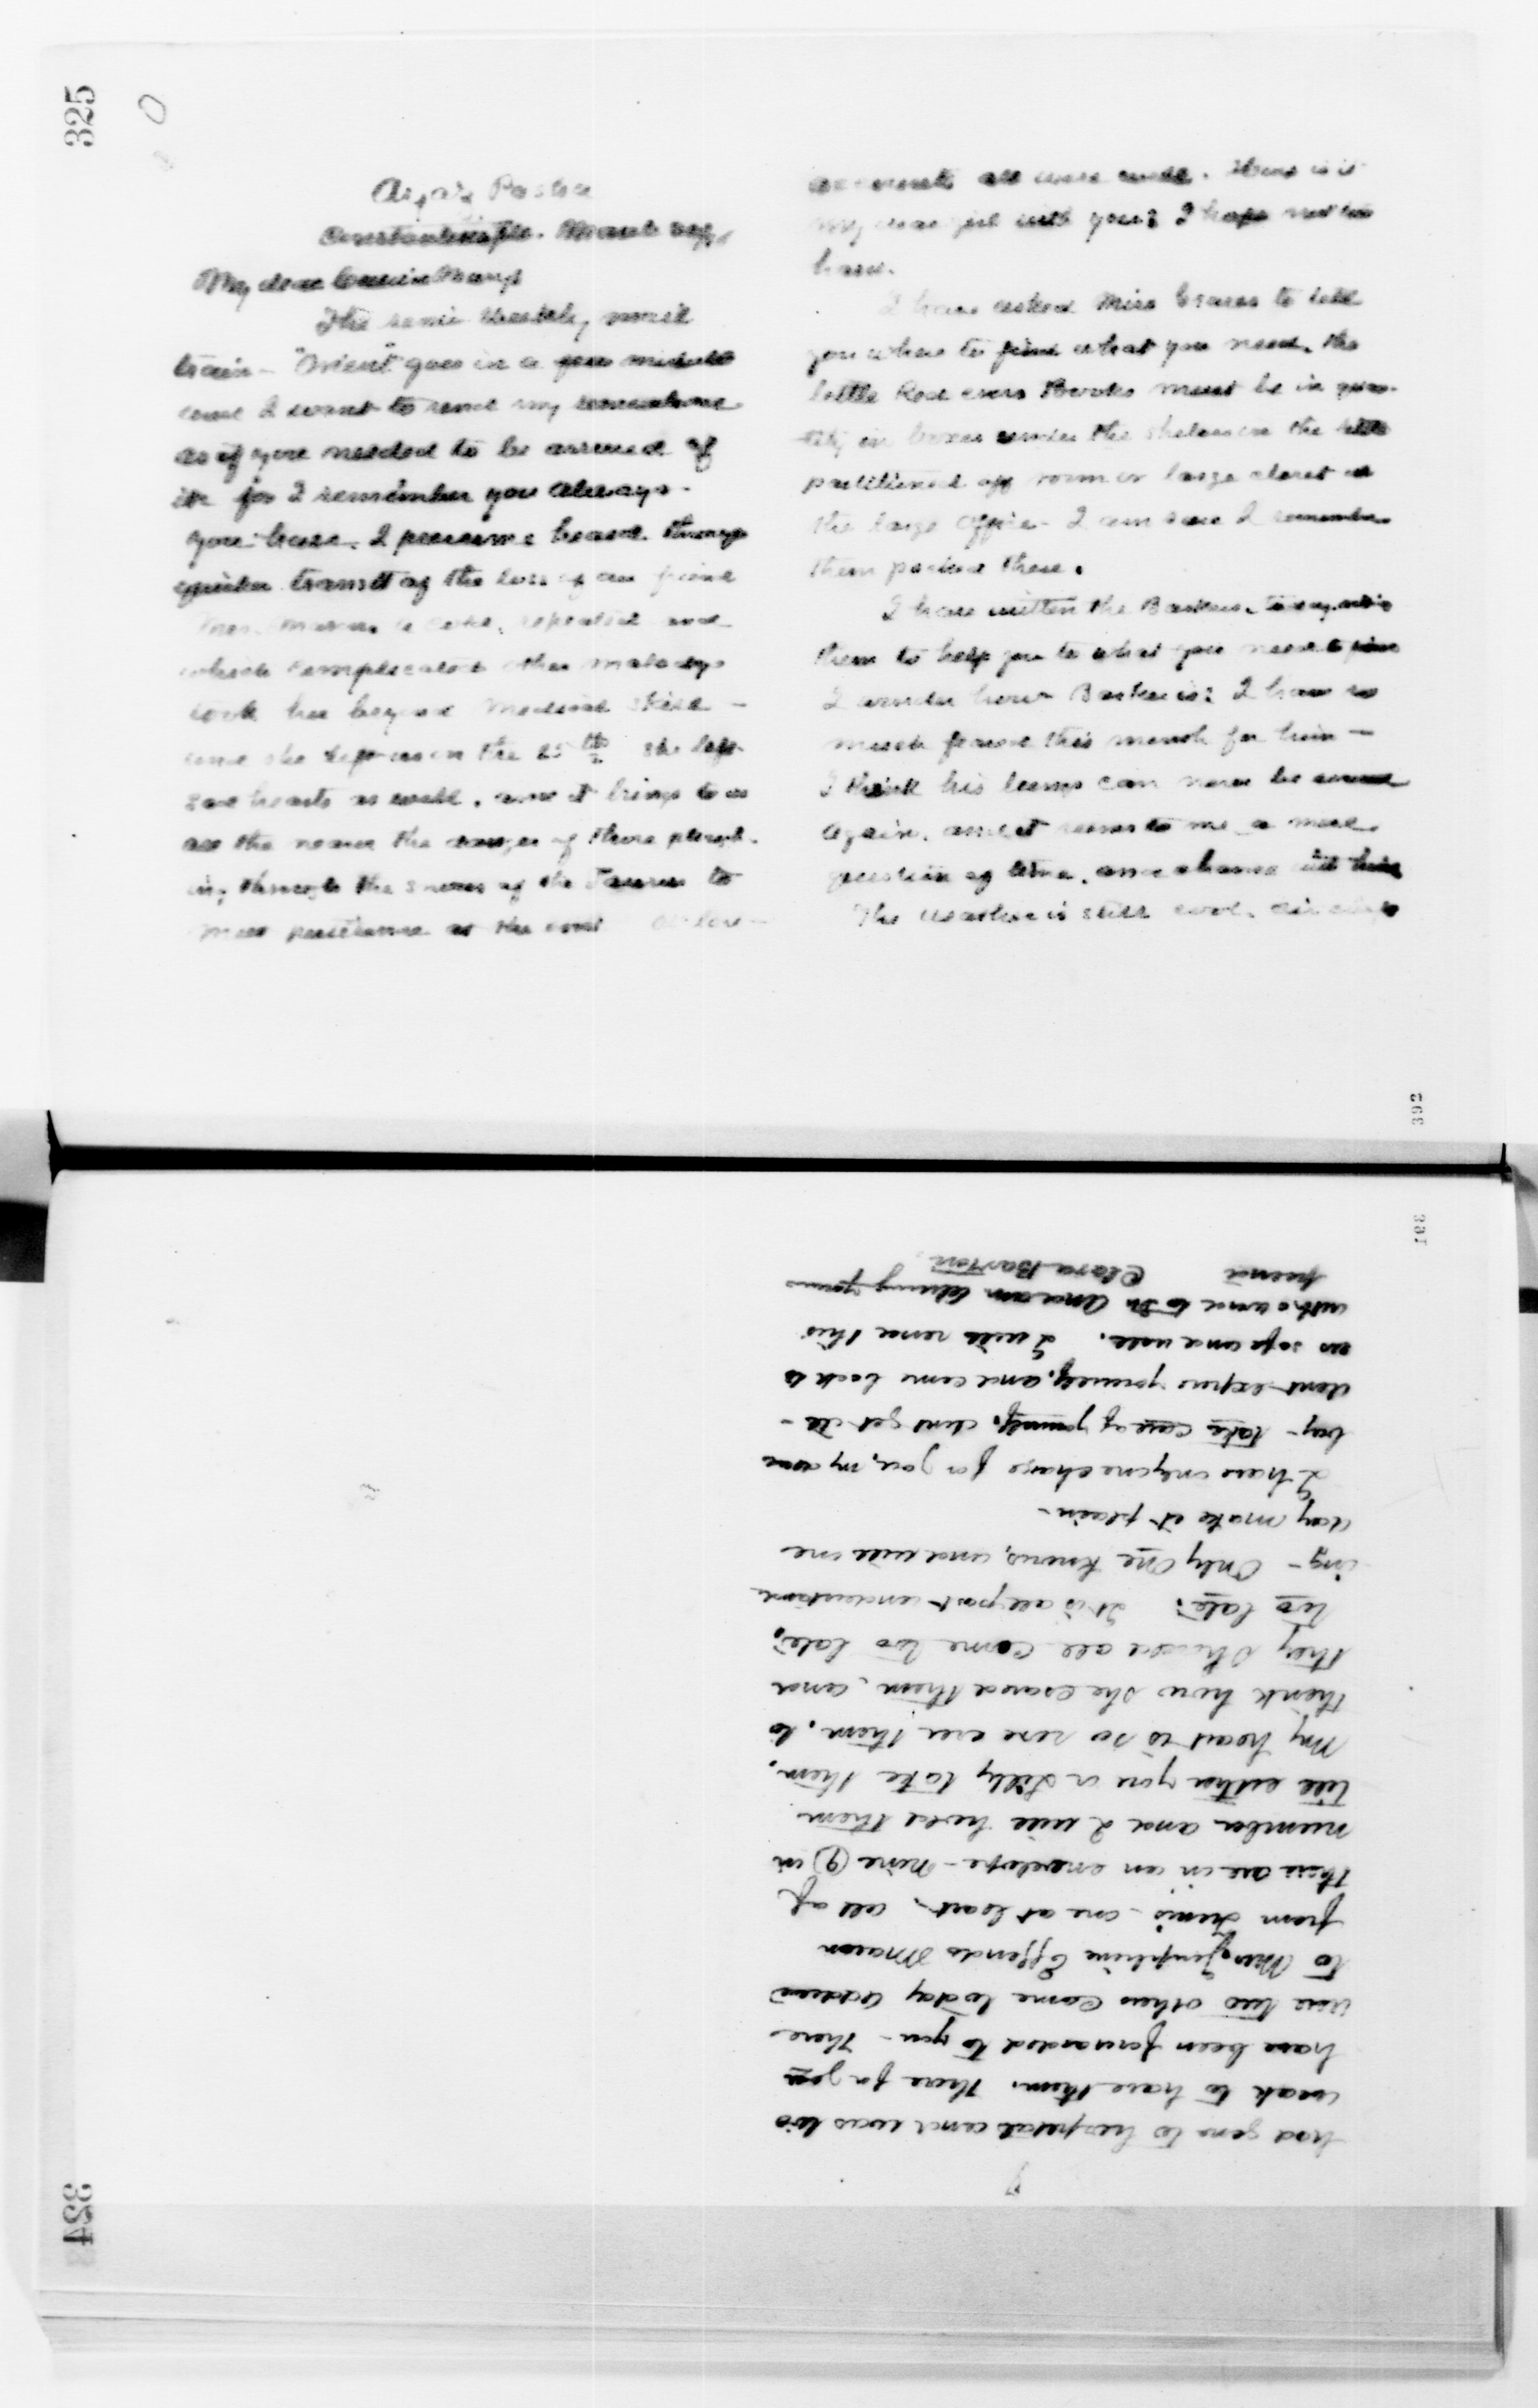 325
My dear Cousin Mary
The semi weekly mail
train - "Orient" goes in a few minutes
and I want to send my remembrance
as if you needed to be assured of
it for I remember you always.
You have, I presume heard through
quicker transit of the loss of our friend
which complicated other maladys
took her beyond medical skill -
and she left us on the 25th she left
sad hearts as well, and it brings to us
all the nearer the danger of those plough-
ing through the snows of the Taurus to
meet pestilence at the end.
accounts all were well. How is it
my dear girl with you? I hope not too
hard.
I have asked Miss Graves to tell
you where to find what you need. The
little Red Cross Books must be in quan-
tity in boxes under the shelves in the little
partitioned off room or large closet in
the large office - I am sure I remember
them packed there.
I have written the Barkers,
them to help you to what you need to find
I wonder how Barker is? I have so
much feared this month for him -
I think his lungs can never be sound
again, and it seems to me a mere
question of time, and chance with him
The weather is still cool,
392
391
had gone to hospital and was too
weak to have them. Those for you
have been forwarded to you - There
were two others came today address
to Mrs. Josephine Effendo Mason
from Tunis - one at least, all of
these are in an envelope - nine (9) in
number and I will hold them
till either you or Lilly take them.
My heart is so sore over them, to
think how she craved them, and
they should all come too late,
too late! It is all past understand
ing - Only One knows, and will one
day make it plain -
I have only one charge for you, my dear
boy - take care of yourself, dont get ill -
dont expose yourself, and come back to
us safe and well. I will send this
friend Clara Barton.
324